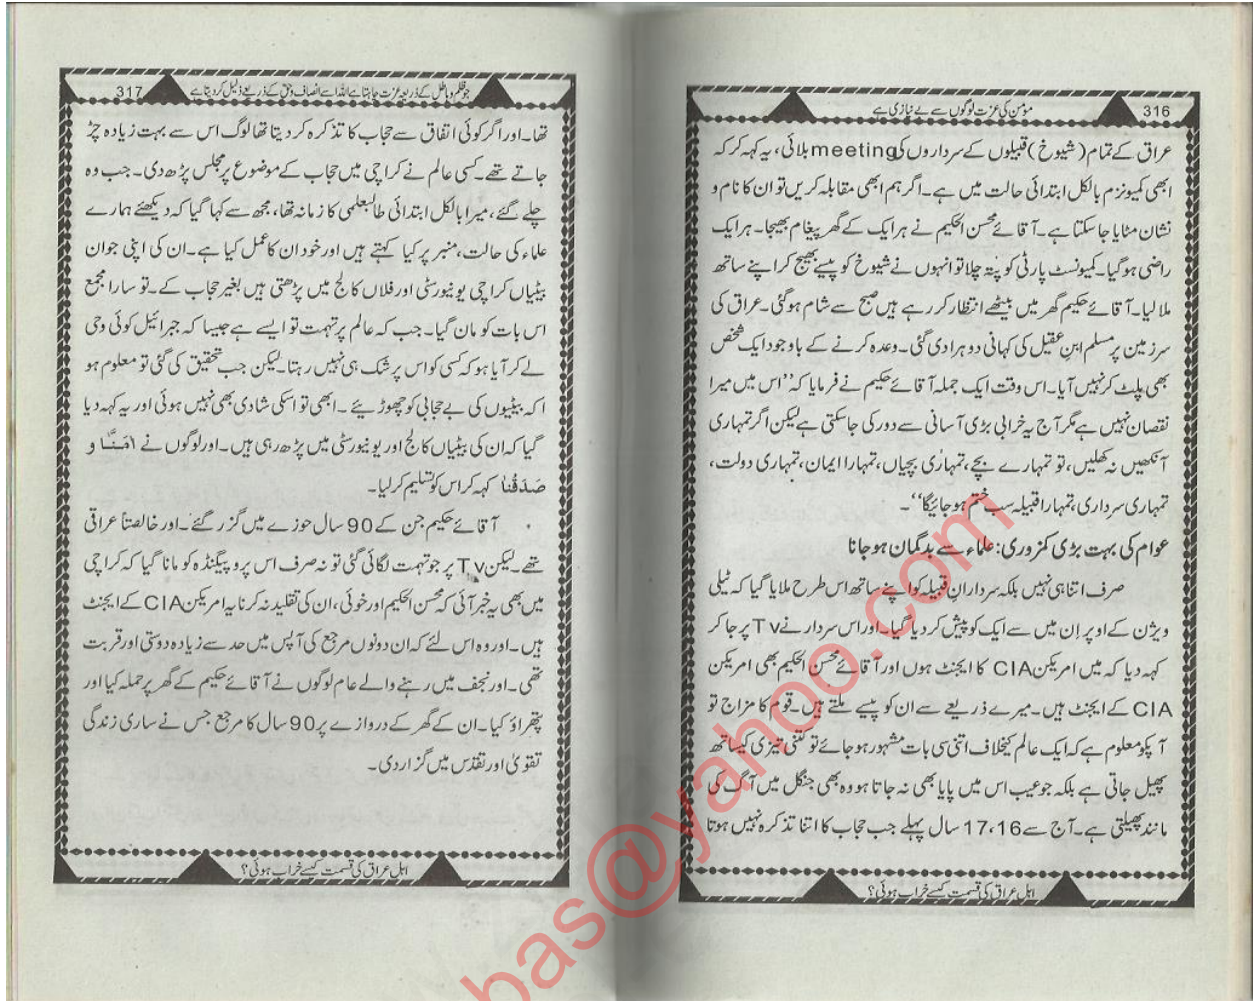 316
مومن کی عزت لوگوں سے بے نیازی ہے
عراق کے تمام (شیوخ) قبیلوں کے سرداروں کی meeting بلائی، یہ کہہ کر کہ
ابھی کمیونزم بالکل ابتدائی حالت میں ہے۔ اگر ہم ابھی مقابلہ کریں تو ان کا نام و
نشان مٹایا جا سکتا ہے۔ آقائے محسن الحکیم نے ہر ایک کے گھر پیغام بھیجا۔ ہر ایک
راضی ہو گیا۔ کمیونسٹ پارٹی کو پتہ چلا تو انہوں نے شیوخ کو پیسے بھیج کر اپنے ساتھ
ملا لیا۔ آقائے حکیم گھر میں بیٹھے انتظار کر رہے ہیں صبح سے شام ہو گئی۔ عراق کی
سرزمین پر مسلم ابنِ عقیل کی کہانی دوہرا دی گئی۔ وعدہ کرنے کے باوجود ایک شخص
بھی پلٹ کر نہیں آیا۔ اس وقت ایک جملہ آقائے حکیم نے فرمایا کہ ‘‘اس میں میرا
نقصان نہیں ہے مگر آج یہ خرابی بڑی آسانی سے دور کی جا سکتی ہے لیکن اگر تمہاری
آنکھیں نہ کھلیں، تو تمہارے بچے، تمہاری بچیاں، تمہارا ایمان، تمہاری دولت،
تمہاری سرداری، تمہارا قبیلہ سب ختم ہو جائیگا’’۔
عوام کی بہت بڑی کمزوری: علماء سے بدگمان ہو جانا
صرف اتنا ہی نہیں بلکہ سردارانِ قبیلہ کو اپنے ساتھ اس طرح ملایا گیا کہ ٹیلی
ویژن کے اوپر اِن میں سے ایک کو پیش کر دیا گیا۔ اور اس سردار نے Tv پر جا کر
کہہ دیا کہ میں امریکن CIA کا ایجنٹ ہوں اور آقائے محسن الحکیم بھی امریکن
CIA کے ایجنٹ ہیں۔ میرے ذریعے سے ان کو پیسے ملتے ہیں۔ قوم کا مزاج تو
آپکو معلوم ہے کہ ایک عالم کیخلاف اتنی سی بات مشہور ہو جائے تو کتنی تیزی کیساتھ
پھیل جاتی ہے بلکہ جو عیب اس میں پایا بھی نہ جاتا ہو وہ بھی جنگل میں آگ کی
مانند پھیلتی ہے۔ آج سے 16، 17 سال پہلے جب حجاب کا اتنا تذکرہ نہیں ہوتا
اہل عراق کی قسمت کیسے خراب ہوئی؟
جو ظلم و باطل کے ذریعہ عزت چاہتا ہے اللہ اسے انصاف و حق کے ذریعے ذلیل کر دیتا ہے
317
تھا۔ اور اگر کوئی اتفاق سے حجاب کا تذکرہ کر دیتا تھا لوگ اس سے بہت زیادہ چڑ
جاتے تھے۔ کسی عالم نے کراچی میں حجاب کے موضوع پر مجلس پڑھ دی۔ جب وہ
چلے گئے، میرا بالکل ابتدائی طالبعلمی کا زمانہ تھا، مجھ سے کہا گیا کہ دیکھئے ہمارے
علماء کی حالت، منبر پر کیا کہتے ہیں اور خود ان کا عمل کیا ہے۔ ان کی اپنی جوان
بیٹیاں کراچی یونیورسٹی اور فلاں کالج میں پڑھتی ہیں بغیر حجاب کے۔ تو سارا مجمع
اس بات کو مان گیا۔ جب کہ عالم پر تہمت تو ایسے ہے جیسا کہ جبرائیل کوئی وحی
لے کر آیا ہو کہ کسی کو اس پر شک ہی نہیں رہتا۔ لیکن جب تحقیق کی گئی تو معلوم ہو
اکہ بیٹیوں کی بے حجابی کو چھوڑیئے۔ ابھی تو اسکی شادی بھی نہیں ہوئی اور یہ کہہ دیا
گیا کہ ان کی بیٹیاں کالج اور یونیورسٹی میں پڑھ رہی ہیں۔ اور لوگوں نے اٰمَنَّا وَ
صَدَقْنَا کہہ کر اس کو تسلیم کر لیا۔
آقائے حکیم جن کے 90 سال حوزے میں گزر گئے۔ اور خالصتاً عراقی
تھے۔ لیکن Tv پر جو تہمت لگائی گئی تو نہ صرف اس پروپیگنڈہ کو مانا گیا کہ کراچی
میں بھی یہ خبر آئی کہ محسن الحکیم اور خوئی، ان کی تقلید نہ کرنا یہ امریکن CIA کے ایجنٹ
ہیں۔ اور وہ اس لئے کہ ان دونوں مرجع کی آپس میں حد سے زیادہ دوستی اور قربت
تھی۔ اور نجف میں رہنے والے عام لوگوں نے آقائے حکیم کے گھر پر حملہ کیا اور
پتھراؤ کیا۔ ان کے گھر کے دروازے پر 90 سال کا مرجع جس نے ساری زندگی
تقویٰ اور تقدس میں گزار دی۔
اہل عراق کی قسمت کیسے خراب ہوئی؟
bas@yahoo.com